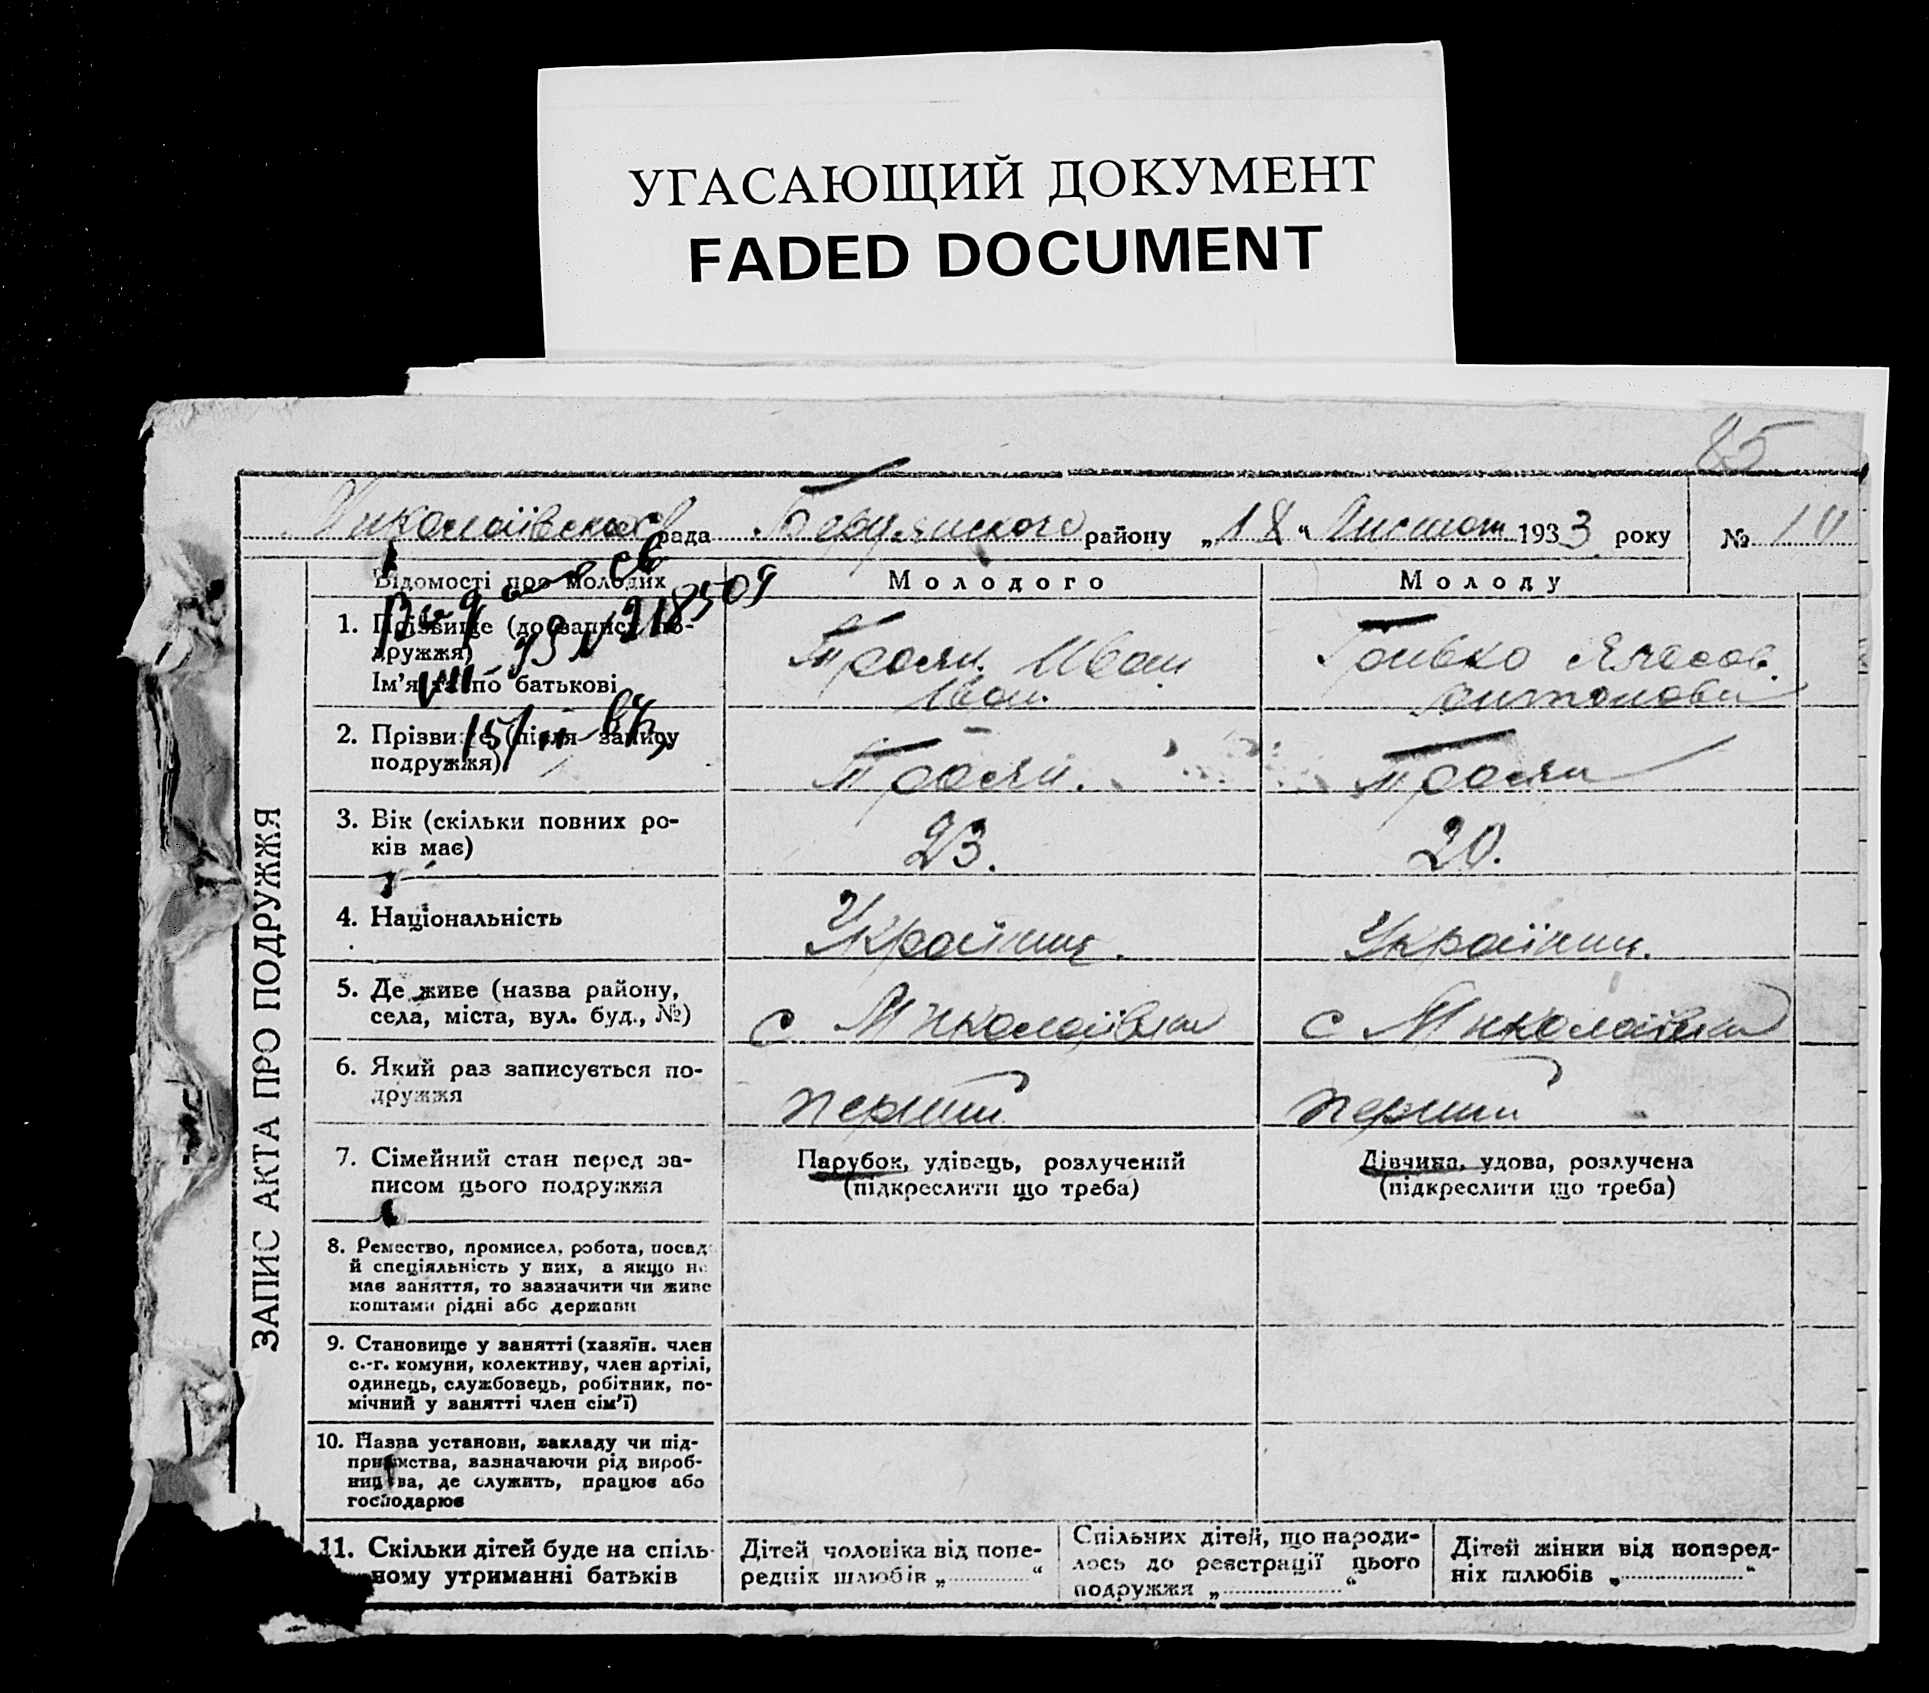 УГАСАЮЩИЙ ДОКУМЕНТ
FADED DOCUMENT
85
Миколаївська рада Бердянского району „18“ Листопад 1933 року № 10
ЗАПИС АКТА ПРО ПОДРУЖЖЯ
Відомості про молодих
Молодого
Молоду
1. Прізвище (до запису по-
дружжя)
Ім'я та по батькові
Троян Иван
Иван.
Антонови
2. Прізвище (після запису
подружжя)
Троян.
Троян
3. Вік (скільки повних ро-
ків має)
23.
20.
4. Національність
Українец.
Українка.
5. Де живе (назва району,
села, міста, вул. буд., №)
с Миколаївка
с Миколаївка
6. Який раз записується по-
дружжя
перший
перший
7. Сімейний стан перед за-
писом цього подружжя
Парубок, удівець, розлучений
(підкреслити що треба)
Дівчина, удова, розлучена
(підкреслити що треба)
8. Ремество, промисел, робота, посад
й спеціяльність у них, а якщо не
має заняття, то зазначити чи живе
коштами рідні або держави
9. Становище у занятті (хазяїн. член
с.-г. комуни, колективу, член артілі,
одинець, службовець, робітник, по-
мічний у занятті член сім'ї)
10. Назва установи, закладу чи під-
приємства, зазначаючи рід вироб-
ництва, де служить, працює або
господарює
11. Скільки дітей буде на спіль-
ному утриманні батьків
Дітей чоловіка від попе-
редніх шлюбів „..............“
Спільних дітей, що народи-
лось до реєстрації цього
подружжя „....................“
Дітей жінки від поперед-
ніх шлюбів „....................“